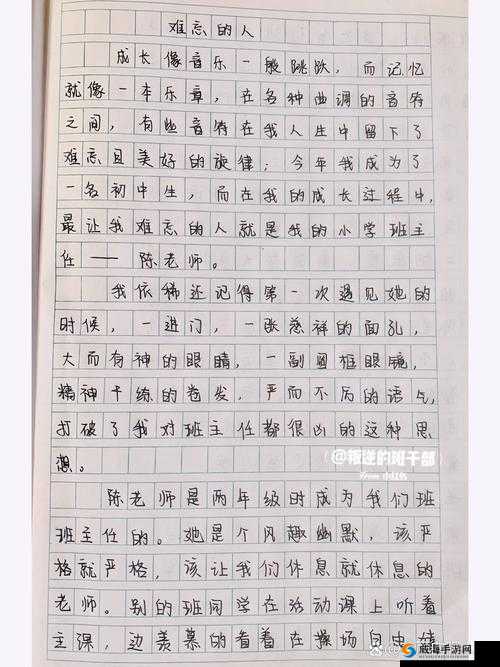 难忘的人
成长像音乐一般跳跃，而记忆
就像一本乐章，在各种曲调的音符
之间，有些音符在我人生中留下了
难忘且美好的旋律；今年我成为了
一名初中生，而在我的成长过程中，
最让我难忘的人就是我的小学班主
任——陈老师。
我依稀还记得第一次遇见她的
时候，一进门，一张慈祥的面孔，
大而有神的眼睛，一副圆框眼镜，
精神干练的卷发，严而不厉的语气，
打破了我对班主任都很凶的这种思
想。
@叛逆的班干部
陈老师是两年级时成为我们班
班主任的。她是个风趣幽默，该严
格就严格，该让我们休息就休息的
老师。别的班同学在活动课上听着
主课，边羡慕的看着在操场自由
威海手游网